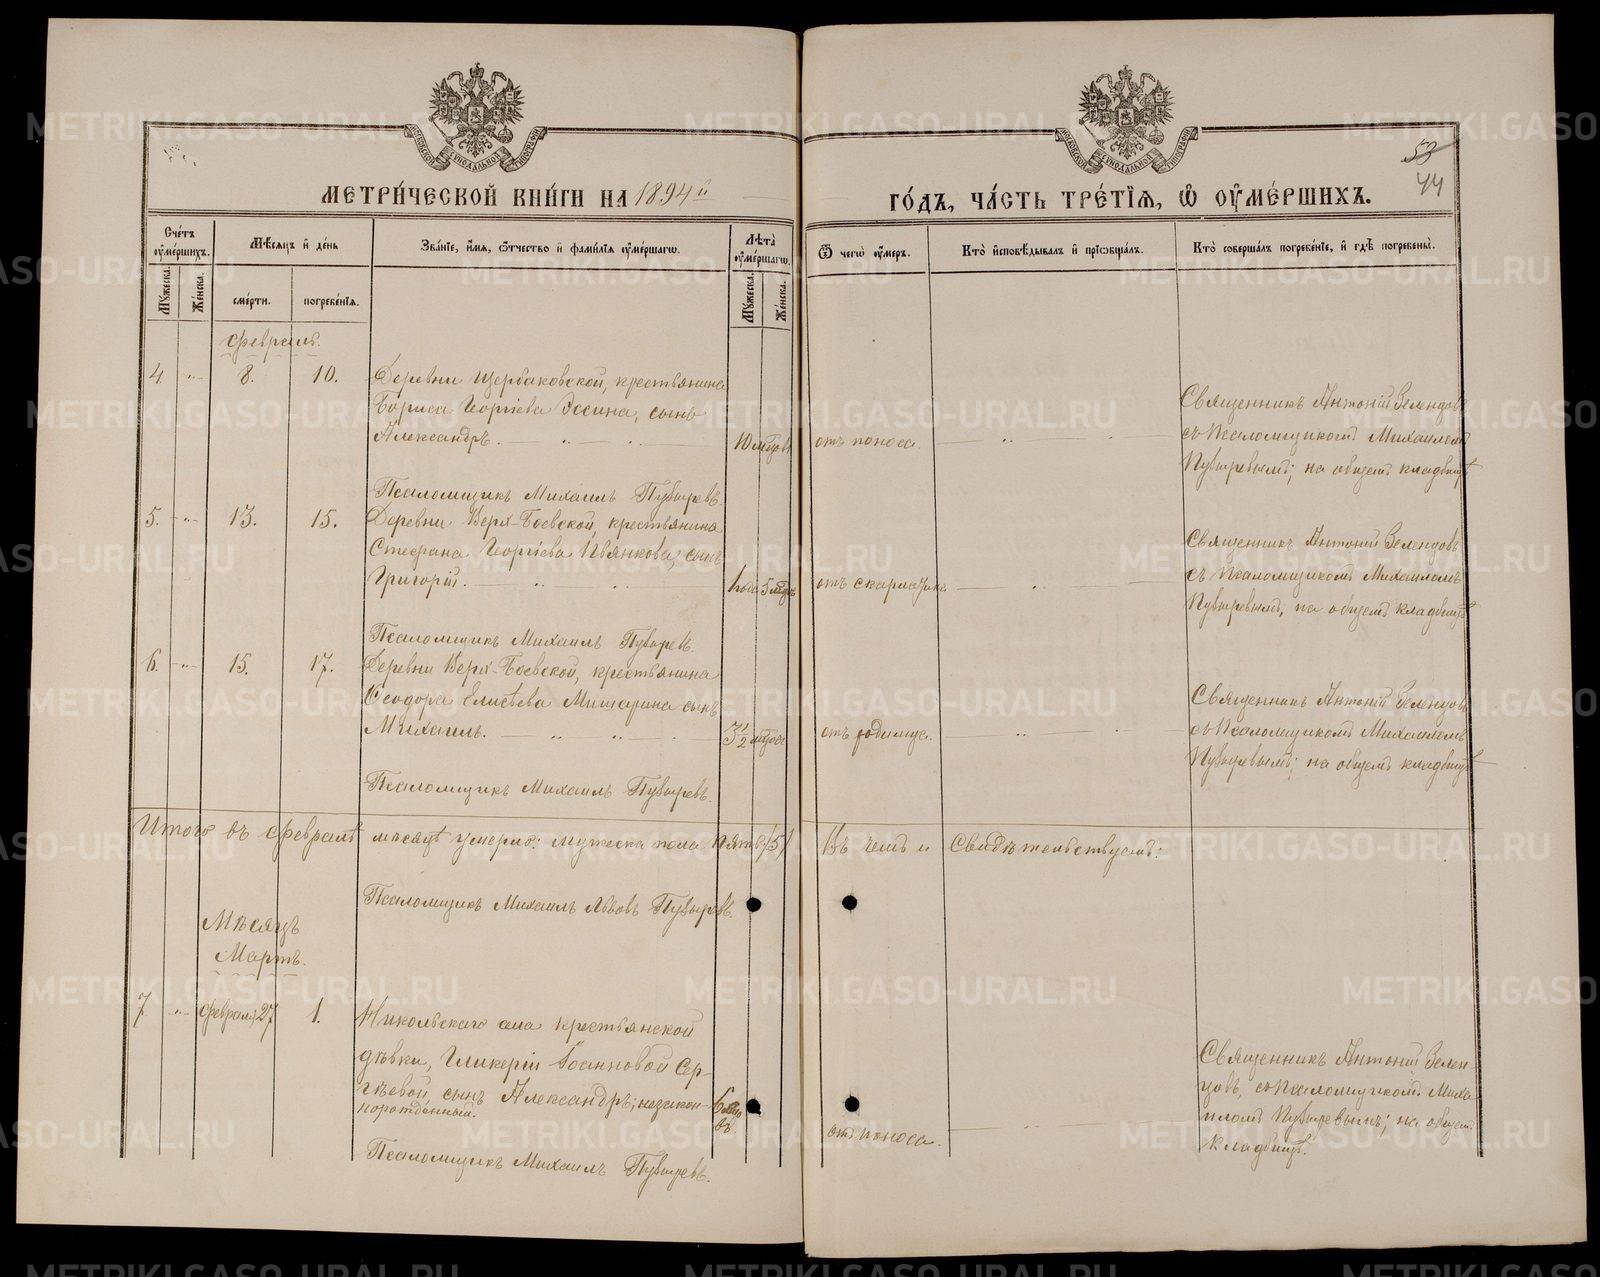 МЕТРИ́ЧЕСКОЙ КНИ́ГИ НА 1894й
ГО́ДЪ, ЧА́СТЬ ТРЕ́ТІѦ, Ѡ҆ ОУ҆МЕ́РШИХЪ.
53
44
Сче́тъ оу҆ме́ршихъ.
Мѣ́сѧцъ и҆ де́нь
Зва́нїе, и҆́мѧ, ѻ҆́тчество и҆ фами́лїѧ оу҆ме́ршагѡ.
Лѣ́та оу҆ме́ршагѡ.
Ѿ чегѡ̀ оу҆́меръ.
Кто̀ и҆сповѣ́дывалъ и҆ прїѡбща́лъ.
Кто̀ соверша́лъ погребе́нїе, и҆ гдѣ̀ погребены̀.
Мꙋ́жеска.
Же́нска.
сме́рти.
погребе́нїѧ.
Мꙋ́жеска.
Же́нска.
февраль.
4 -"- 8. 10. Деревни Щербаковской, крестьянина
Бориса Георгіева сынъ
Александръ. 10 мѣсяцевъ отъ поноса.
Священникъ Антоній Зеленцовъ
съ псаломщикомъ Михаиломъ
Пузыревымъ; на общемъ кладбищѣ
Псаломщикъ Михаилъ Пузыревъ.
5. -"- 13. 15. Деревни Верх-Боевской, крестьянина
Стефана Георгіева Пьянкова, сынъ
Григорій. 5 отъ скарлатины.
Священникъ Антоній Зеленцовъ
съ псаломщикомъ Михаиломъ
Пузыревымъ, на общемъ кладбищѣ
Псаломщикъ Михаилъ Пузыревъ.
6. -"- 15. 17. Деревни Верх-Боевской, крестьянина
Ѳеодора Елисѣева Мишарина сынъ
Михаилъ. 3½ отъ родимца.
Священникъ Антоній Зеленцовъ
съ псаломщикомъ Михаиломъ
Пузыревымъ; на общемъ кладбищѣ
Псаломщикъ Михаилъ Пузыревъ.
Итого въ февралѣ мѣсяцѣ умерло: мужеска пола пять /5/ Въ чемъ и свидѣтельствуемъ:
Псаломщикъ Михаилъ Львовъ Пузыревъ.
Мѣсяцъ
Мартъ.
7 -"- февраля 27 1. Никольскаго села крестьянской
дѣвки, Гликеріи Іоанновой Сер-
гѣевой, сынъ Александръ; незакон-
норожденный. 6 отъ поноса.
Священникъ Антоній Зелен-
цовъ, съ псаломщикомъ Миха
иломъ Пузыревымъ; на общемъ
кладбищѣ.
Псаломщикъ Михаилъ Пузыревъ.
METRIKI.GASO-URAL.RU